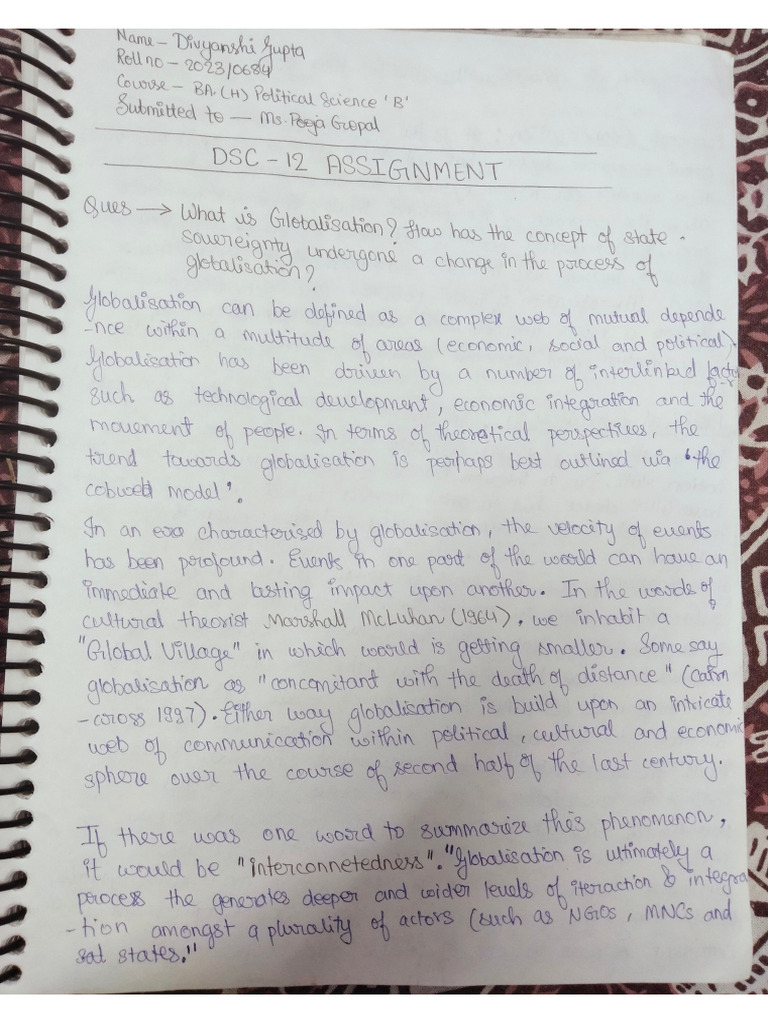 Name - Divyanshi Gupta
Roll no - 2023/0684
Course - BA.(H) Political Science 'B'
Submitted to - Ms. Pooja Gopal
DSC - 12 ASSIGNMENT
Ques → What is Globalisation? How has the concept of state
sovereignty undergone a change in the process of
globalisation?
Globalisation can be defined as a complex web of mutual depende
-nce within a multitude of areas (economic, social and political).
Globalisation has been driven by a number of interlinked
such as technological development, economic integration and the
movement of people. In terms of theoretical perspectives, the
trend towards globalisation is perhaps best outlined via 'the
cobweb model'.
In an era characterised by globalisation, the velocity of events
has been profound. Events in one part of the world can have an
immediate and lasting impact upon another. In the words of
cultural theorist Marshall McLuhan (1964), we inhabit a
"Global Village" in which world is getting smaller. Some say
globalisation as "concomitant with the death of distance" (Cairn
-cross 1997). Either way globalisation is build upon an intricate
web of communication within political, cultural and economic
sphere over the course of second half of the last century.
If there was one word to summarize this phenomenon,
it would be "interconnetedness". "Globalisation is ultimately a
process the generates deeper and wider levels of iteraction & integra
-tion amongst a plurality of actors (such as NGOs, MNCs and
sat states."